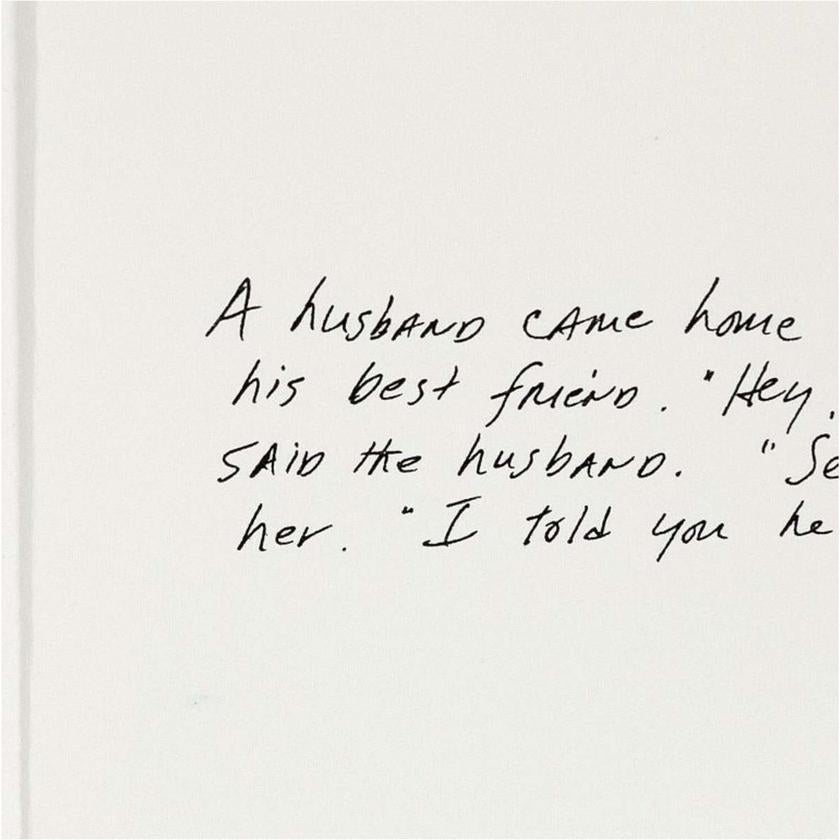 A husband came home
his best friend. "Hey,
said the husband. "Se
her. "I told you he